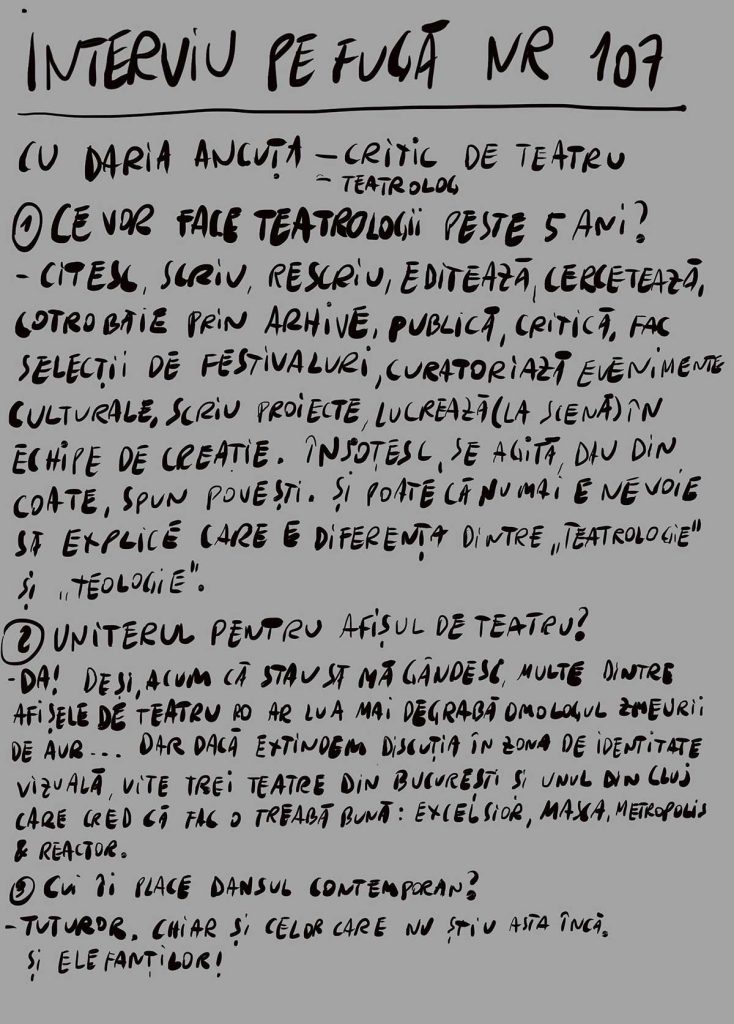 INTERVIU PE FUGĂ NR 107
CU DARIA ANCUȚA – CRITIC DE TEATRU
– TEATROLOG
① CE VOR FACE TEATROLOGII PESTE 5 ANI?
- CITESC, SCRIU, RESCRIU, EDITEAZĂ, CERCETEAZĂ,
COTROBĂIE PRIN ARHIVE, PUBLICĂ, CRITICĂ, FAC
SELECȚII DE FESTIVALURI, CURATORIAZĂ EVENIMENTE
CULTURALE, SCRIU PROIECTE, LUCREAZĂ (LA SCENĂ) ÎN
ECHIPE DE CREAȚIE. ÎNSOȚESC, SE AGITĂ, DAU DIN
COATE, SPUN POVEȘTI. ȘI POATE CĂ NU MAI E NEVOIE
SĂ EXPLICE CARE E DIFERENȚA DINTRE „TEATROLOGIE"
ȘI „TEOLOGIE".
② UNITERUL PENTRU AFIȘUL DE TEATRU?
- DA! DEȘI, ACUM CĂ STAU SĂ MĂ GÂNDESC, MULTE DINTRE
AFIȘELE DE TEATRU RO AR LUA MAI DEGRABĂ OMOLOGUL ZMEURII
DE AUR... DAR DACĂ EXTINDEM DISCUȚIA ÎN ZONA DE IDENTITATE
VIZUALĂ, UITE TREI TEATRE DIN BUCUREȘTI ȘI UNUL DIN CLUJ
CARE CRED CĂ FAC O TREABĂ BUNĂ: EXCELSIOR, MASCA, METROPOLIS
& REACTOR.
③ CUI ÎI PLACE DANSUL CONTEMPORAN?
- TUTUROR. CHIAR ȘI CELOR CARE NU ȘTIU ASTA ÎNCĂ.
ȘI ELEFANȚILOR!